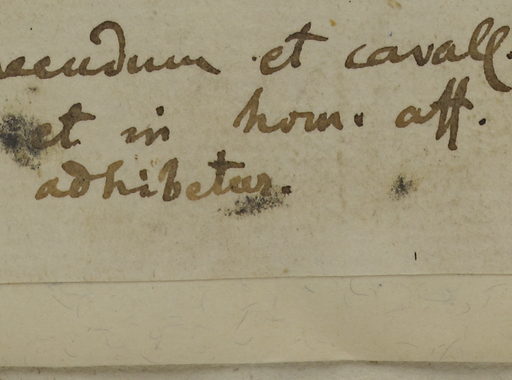 ecudum et cavall.
et in hom. aff.
adhibetur.